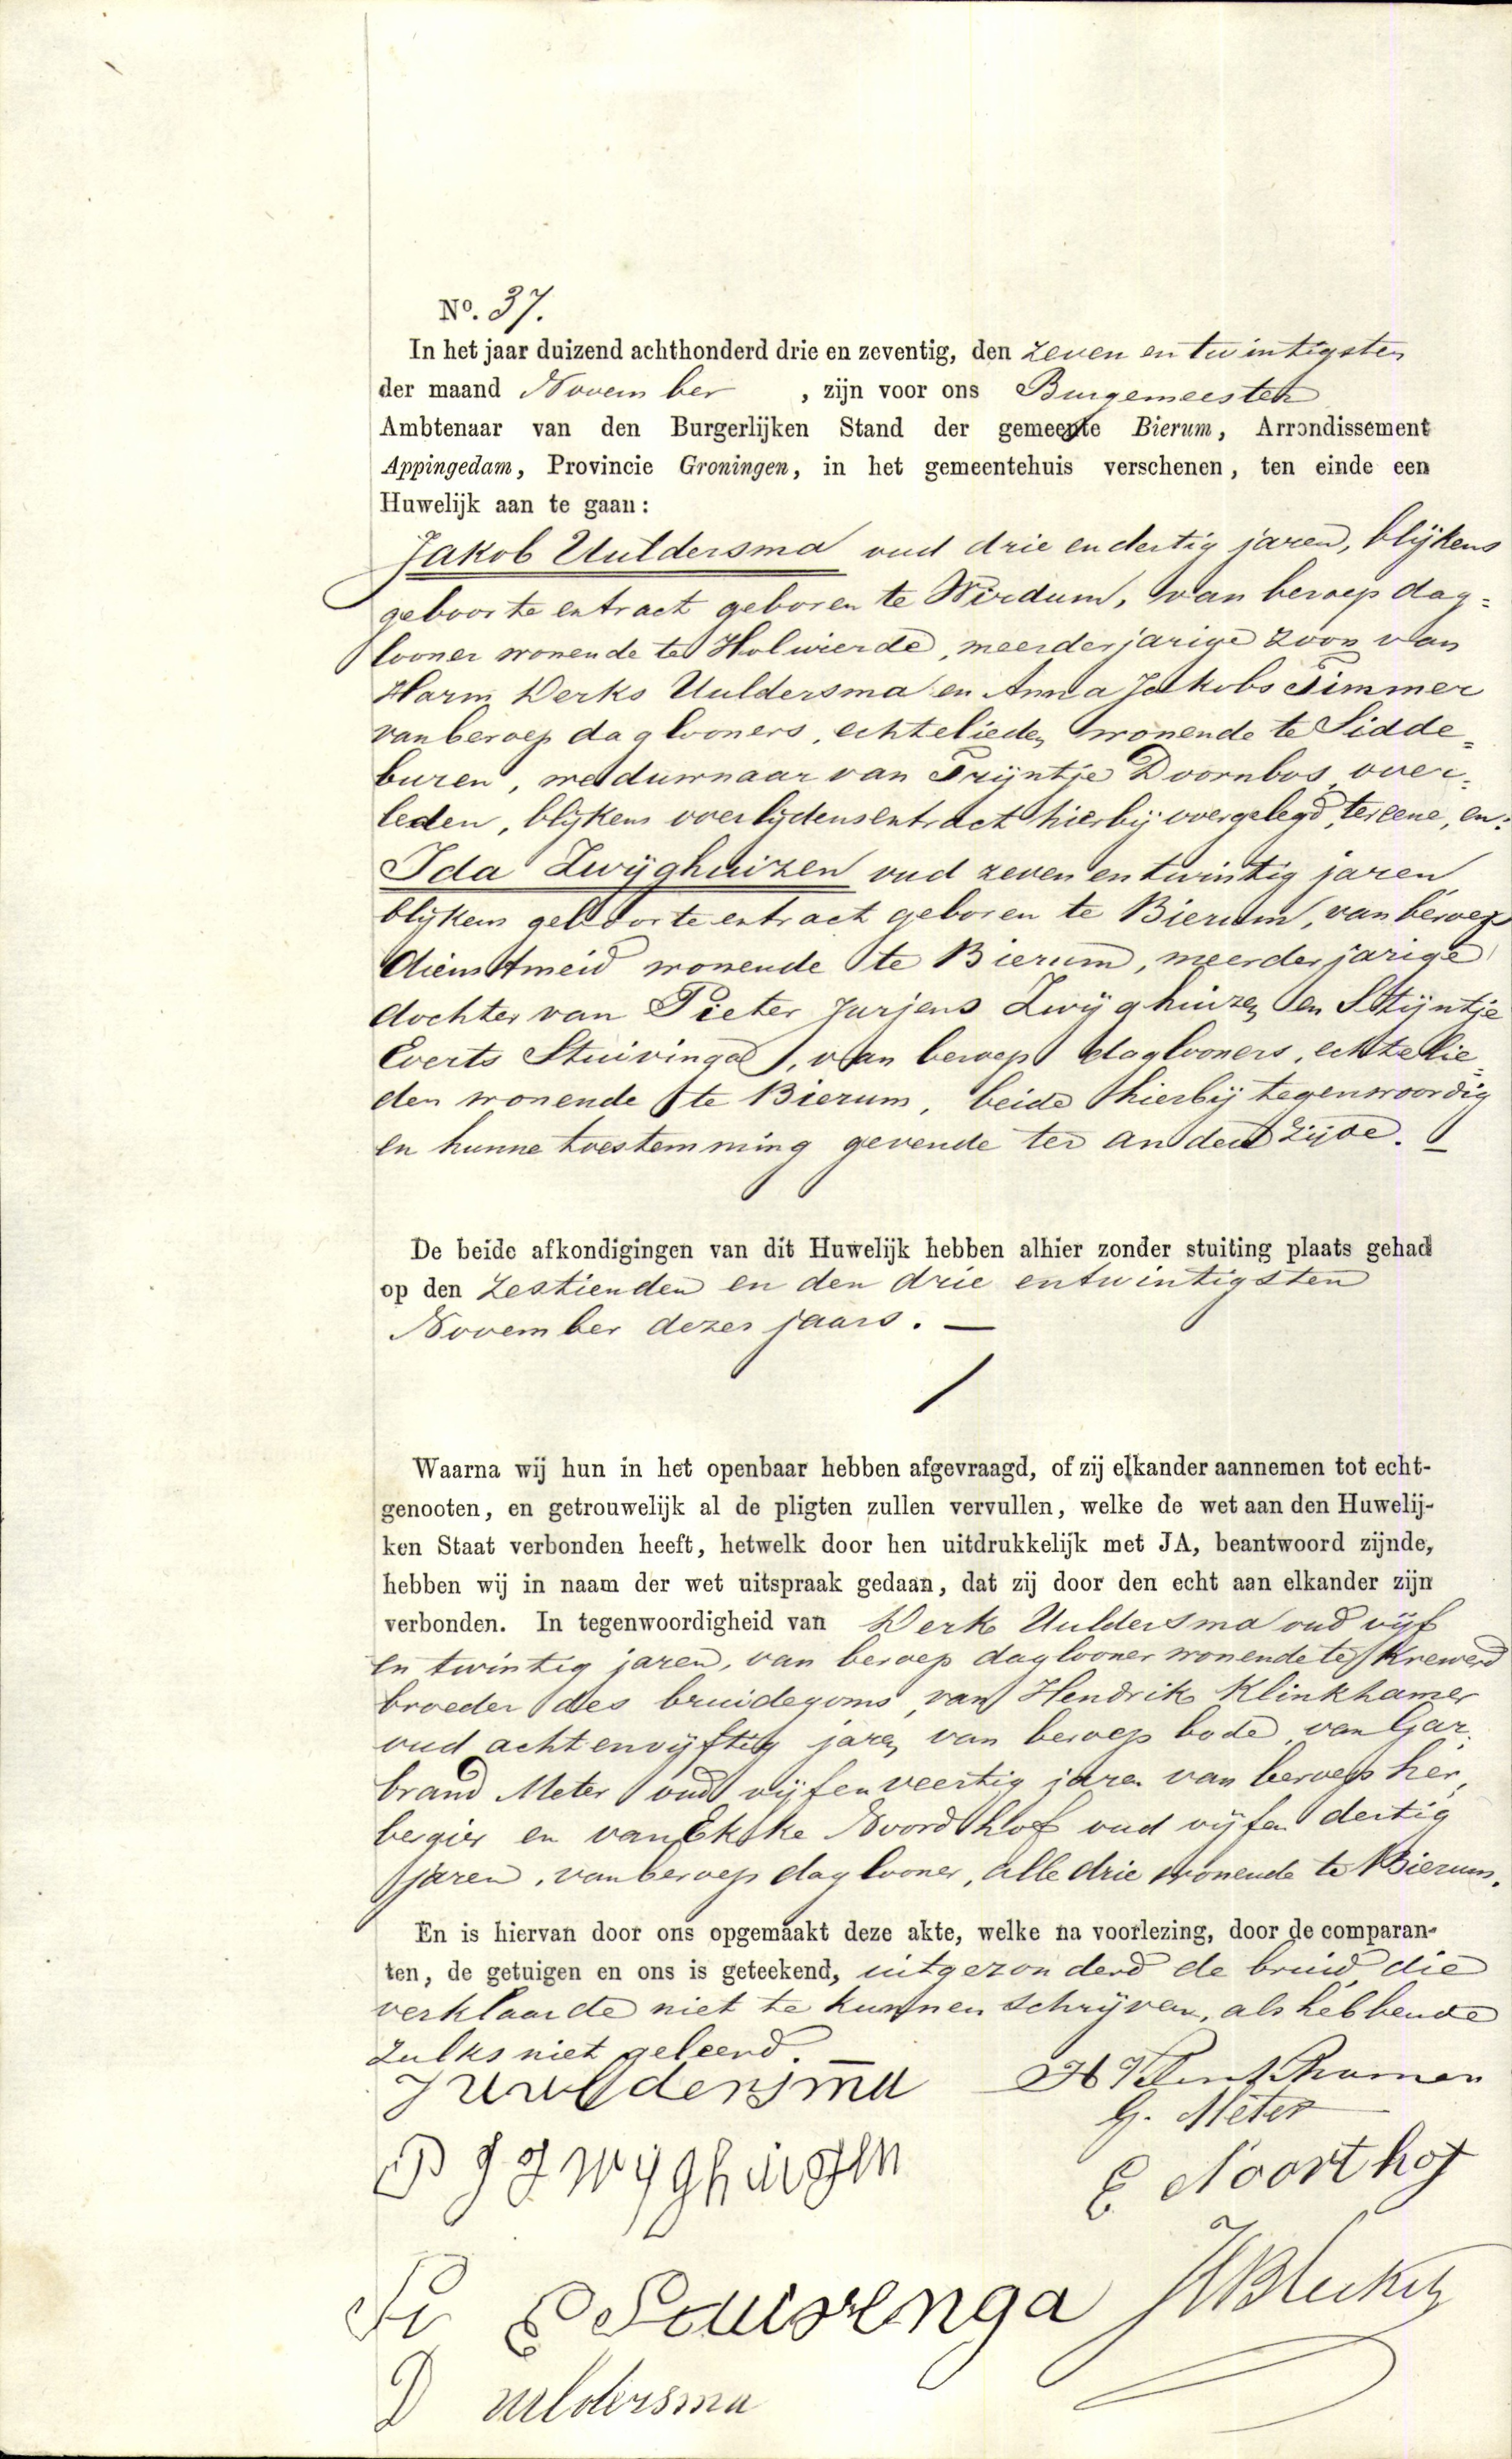 No. 37.
In het jaar duizend achthonderd drie en zeventig, den zeven en twintigsten
der maand November , zijn voor ons Burgemeester
Ambtenaar van den Burgerlijken Stand der gemeente Bierum, Arrondissement
Appingedam, Provincie Groningen, in het gemeentehuis verschenen, ten einde een
Huwelijk aan te gaan:
Jakob Uuldersma oud drie en dertig jaren, blijkens
geboorte extract geboren te Wirdum, van beroep dag=
looner wonende te Holwierde, meerderjarige zoon van
Harm Derks Uuldersma en Anna Jakobs Timmer
van beroep daglooners, echtelieden wonende te Sidde=
buren, weduwnaar van Trijntje Doornbos, over=
leden, blijkens overlijdensextract hierbij overgelegd, ter eene, en:
Ida Zwijghuizen oud zeven en twintig jaren
blijkens geboorte extract geboren te Bierum, van beroep
dienstmeid wonende te Bierum, meerderjarige
dochter van Pieter Jurjens Zwijghuizen en Stijntje
Everts Stuivinga, van beroep daglooners, echtelie=
den wonende te Bierum, beide hierbij tegenwoordig
en hunne toestemming gevende ter andere zijde.
De beide afkondigingen van dit Huwelijk hebben alhier zonder stuiting plaats gehad
op den zestienden en den drie en twintigsten
November dezes jaars. —
Waarna wij hun in het openbaar hebben afgevraagd, of zij elkander aannemen tot echt-
genooten, en getrouwelijk al de pligten zullen vervullen, welke de wet aan den Huwelij-
ken Staat verbonden heeft, hetwelk door hen uitdrukkelijk met JA, beantwoord zijnde,
hebben wij in naam der wet uitspraak gedaan, dat zij door den echt aan elkander zijn
verbonden. In tegenwoordigheid van Derk Uuldersma oud vijf
en twintig jaren, van beroep daglooner wonende te Krewerd
broeder des bruidegoms, van Hendrik Klinkhamer
oud acht en vijftig jaren van beroep bode, van Gar=
brand Meter oud vijf en veertig jaren van beroep her=
bergier en van Ekke Noordhof oud vijf en dertig
jaren, van beroep daglooner, alle drie wonende te Bierum.
En is hiervan door ons opgemaakt deze akte, welke na voorlezing, door de comparan-
ten, de getuigen en ons is geteekend, uitgezonderd de bruid die
verklaarde niet te kunnen schrijven, als hebbende
zulks niet geleerd. —
J uuldersma H Klinkhamer
G. Meter
P J Zwyghuisen
E Noorthof
St E Stuivenga
D uuldersma